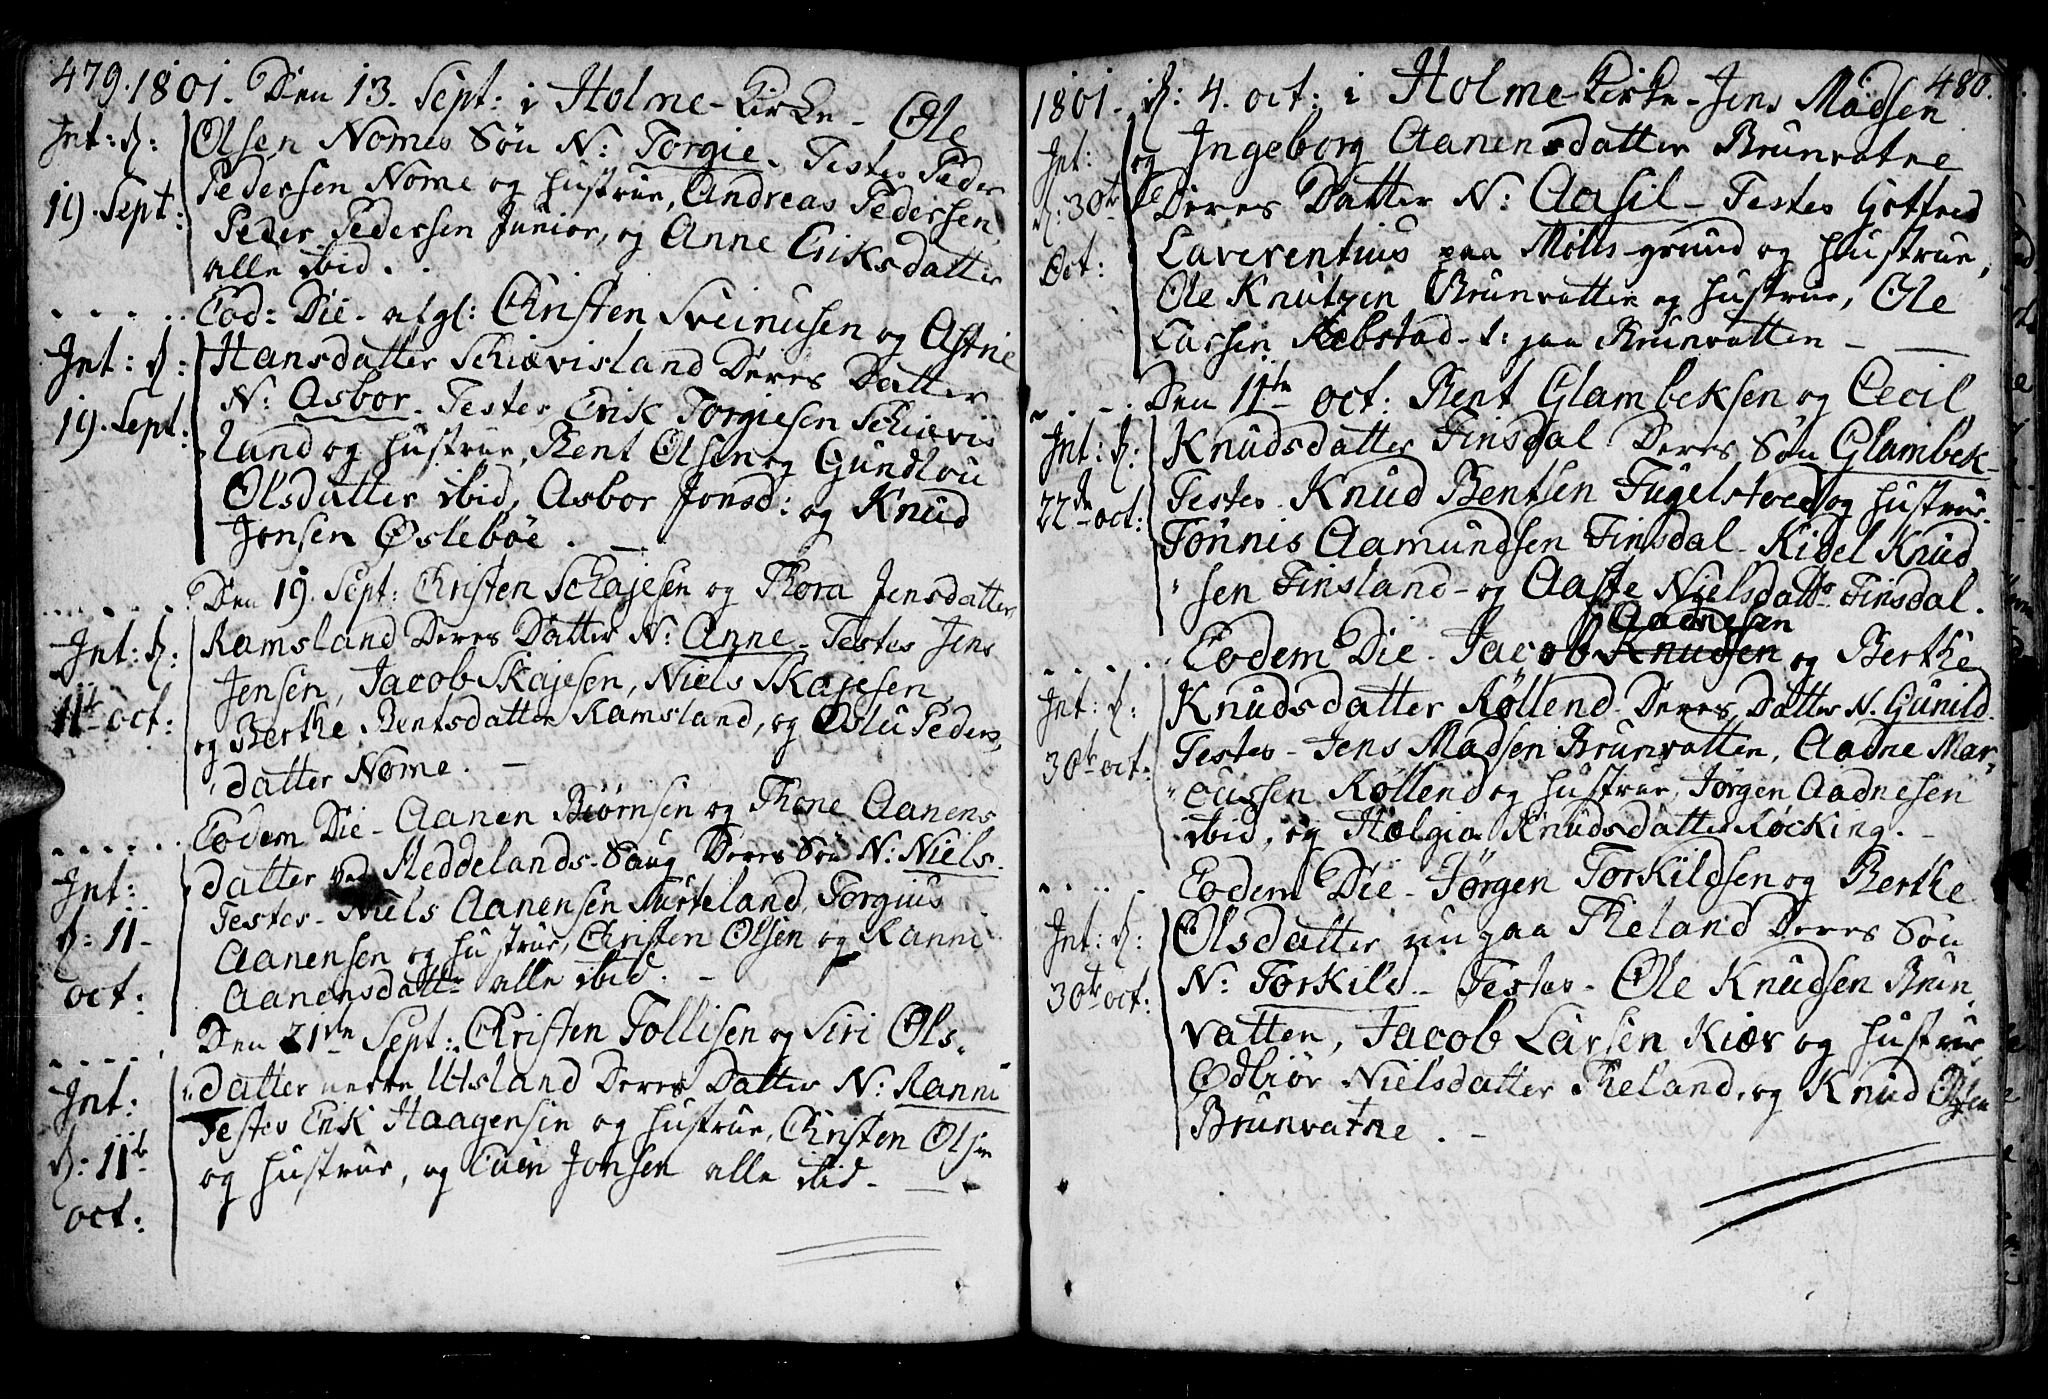 479. 1801. Den 13. Sept: i Holme-Kirke - Ole
Int: d: Olsen Nomes Søn N: Torgie. Testes Peder
Pedersen Nome og Hustrue, Andreas Pedersen,
19. Sept: Peder Pedersen Junior, og Anne Eriksdatter
alle ibid.
Eod: Die - Christen Sveinusen og Astrie
Int: d: Hansdatter Schiævisland Deres Datter
N: Asbor. Testes Erik Torgiesen Schiævis
19. Sept: land og Hustrue, Bent Olsen og Gundlou
Olsdatter ibid, Asbor Jonsd: og Knud
Jonsen Øslebøe.
Den 19. Sept: Christen Schajesen og Thora Jensdatter
Int: d: Ramsland Deres Datter N: Anne - Testes Jens
Jensen, Jacob Skajesen, Niels Skajesen,
11te oct: og Berthe Bentsdatter Ramsland, og Oslu Peders,
datter Nome.
Eodem Die - Aanen Biørnsen og Thone Aanens
Int: datter ved Meddelands-Saug Deres Søn N: Niels.
Testes - Niels Aanensen Turteland, Torgius
d: 11 - Aanensen og Hustrue, Christen Olsen og Ranni
oct: Aanensdatt: alle ibid. -
Den 21de Sept: Christen Tollisen og Siri Ols,
Int: datter Utsland Deres Datter N: Ranni
Testes Erik Haagensen og Hustrue, Christen Olsen
d: 11te og Hustrue, og Even Jonsen alle ibid.
oct:
480.
1801. d: 4. oct: i Holme Kirke - Jens Madsen
Int: og Ingeborg Aanensdatter Brunvatne
d: 30te Deres Datter N: Aasil - Testes Gotfred
Oct: Laverentius paa Mølls-grund og Hustrue,
Ole Knutzen Brunvatten og Hustrue, Ole
Larsen Rebstad - paa Brunvatten -
Den 11te oct: Bent Glambeksen og Cecil
Int: d: Knudsdatter Finsdal Deres Søn Glambek -
22de oct: Testes - Knud Bentsen Fugelstved og Hustrue.
Tønnis Aamundsen Finsdal - Kidel Knud,
sen Finsland - og Aaste Nielsdatt: Finsdal.
Aadnesen
Eodem Die - Jacob Knudsen og Berthe
Int: d: Knudsdatter Røllend Deres Datter N. Gunild.
30te oct: Testes - Jens Madsen Brunvatten, Aadne Mar,
cussen Røllend og Hustrue, Jørgen Aadnesen
ibid, og Hælgia Knudsdatter Røcking. -
Eodem Die - Jørgen Torkildsen og Berthe
Int: d: Olsdatter nu paa Theland Deres Søn
30te oct: N: Torkild - Testes - Ole Knudsen Brun,
vatten, Jacob Larsen Kiær og Hustrue,
Ødbiør Nielsdatter Theland, og Knud Olsen
Brunvatne. -